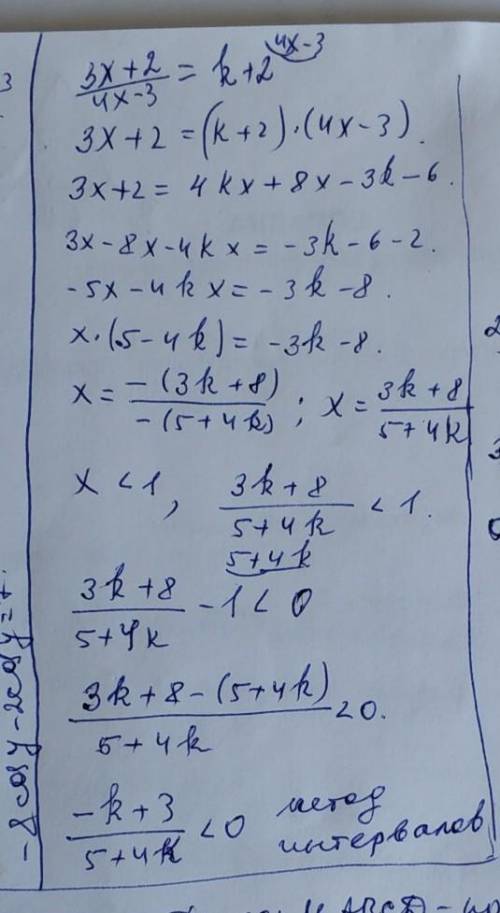 3
4x-3
(3x+2)/(4x-3) = k+2
3x+2 = (k+2)·(4x-3).
3x+2 = 4kx+8x-3k-6.
3x-8x-4kx = -3k-6-2.
-5x-4kx = -3k-8.
x·(5-4k) = -3k-8.
x = -(3k+8)/-(5+4k) ; x = (3k+8)/(5+4k)
x < 1, (3k+8)/(5+4k) < 1.
5+4k
(3k+8)/(5+4k) - 1 < 0
(3k+8-(5+4k))/(5+4k) < 0.
(-k+3)/(5+4k) < 0 метод
интервалов